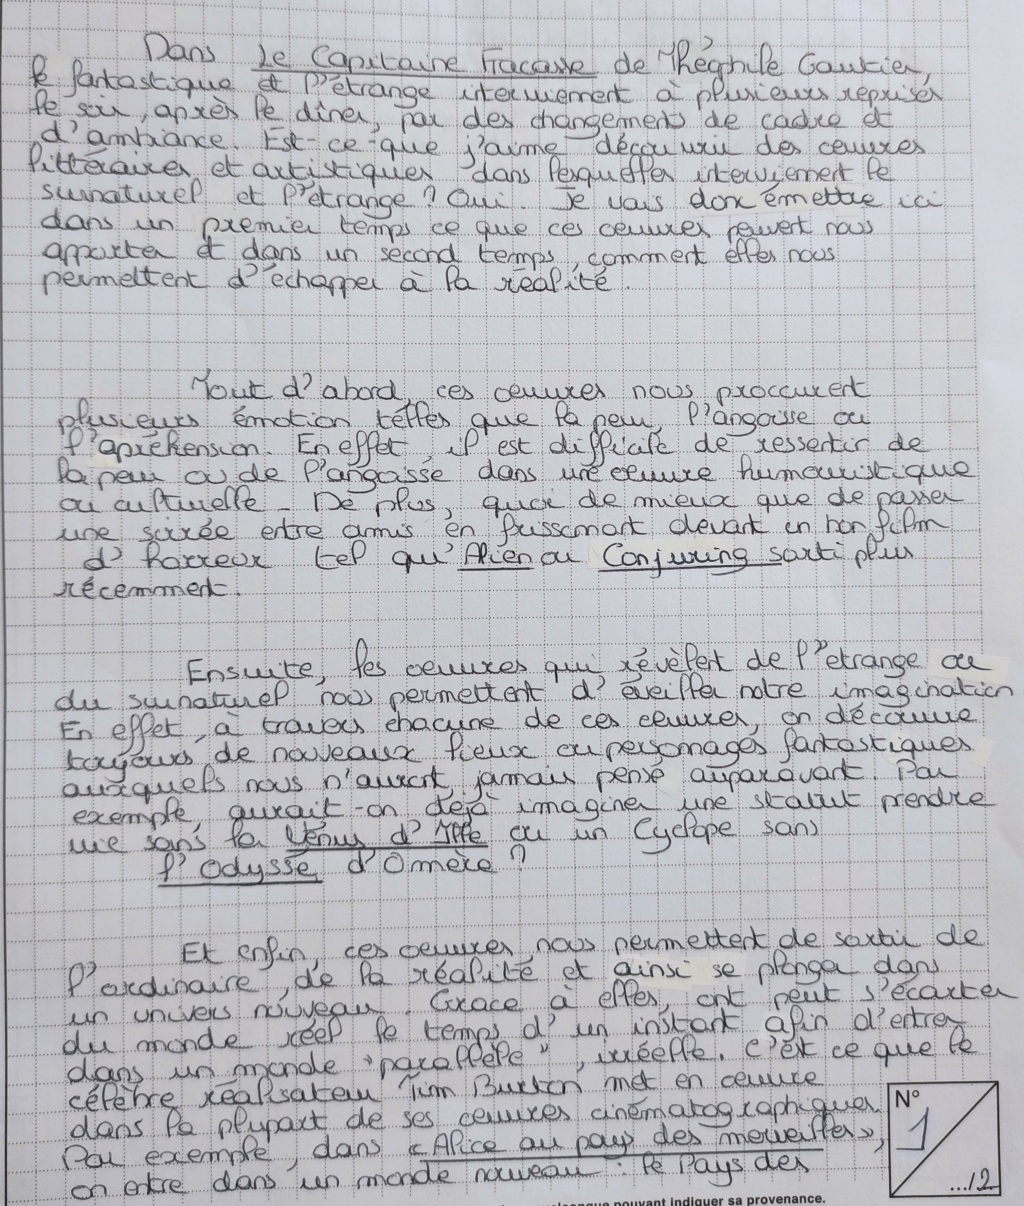 Dans Le Capitaine Fracasse de Théophile Gautier,
le fantastique et l'étrange interviennent à plusieurs reprises
le soir, après le dîner, par des changements de cadre et
d'ambiance. Est-ce-que j'aime découvrir des oeuvres
littéraires et artistiques dans lesquelles interviennent le
surnaturel et l'étrange ? Oui. Je vais donc émettre ici
dans un premier temps ce que ces oeuvres peuvent nous
apporter et dans un second temps, comment elles nous
permettent d'échapper à la réalité.
Tout d'abord, ces oeuvres nous proccurent
plusieurs émotion telles que la peur, l'angoisse ou
l'apréhension. En effet, il est difficile de ressentir de
la peur ou de l'angoisse dans une oeuvre humouristique
ou culturelle. De plus, quoi de mieux que de passer
une soirée entre amis en frissonant devant un bon film
d'horreur tel qu'Alien ou Conjuring sorti plus
récemment.
Ensuite, les oeuvres qui révèlent de l'etrange ou
du surnaturel nous permettent d'éveiller notre imagination
En effet, à travers chacune de ces oeuvres, on découvre
toujours de nouveaux lieux ou personages fantastiques
auxquels nous n'auront jamais pensé auparavant. Par
exemple, aurait-on déjà imaginer une statut prendre
vie sans la Vénus d'Ille ou un Cyclope sans
l'Odyssé d'Omère ?
Et enfin, ces oeuvres nous permettent de sortir de
l'ordinaire, de la réalité et ainsi se plonger dans
un univers nouveau. Grace à elles, ont peut s'écarter
du monde réel le temps d'un instant afin d'entrer
dans un monde "parallèle", irréelle. C'est ce que le
célèbre réalisateur Tim Burton met en oeuvre
dans la plupart de ses oeuvres cinématographiques.
Par exemple, dans «Alice au pays des merveilles»,
on entre dans un monde nouveau : le Pays des
N°
1
.../2
pouvant indiquer sa provenance.